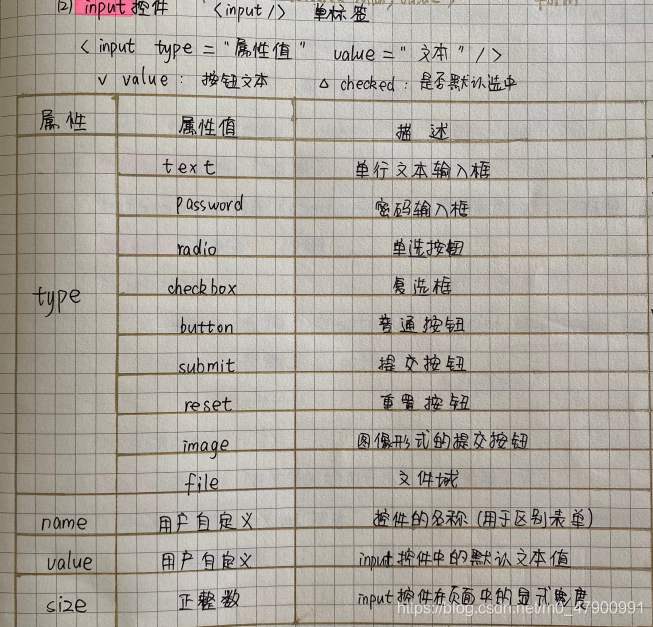 (2) input控件 <input /> 单标签
<input type="属性值" value="文本" />
∨ value: 按钮文本 △ checked: 是否默认选中
属性 属性值 描述
type
text 单行文本输入框
password 密码输入框
radio 单选按钮
checkbox 复选框
button 普通按钮
submit 提交按钮
reset 重置按钮
image 图像形式的提交按钮
file 文件域
name 用户自定义 控件的名称(用于区别表单)
value 用户自定义 input控件中的默认文本值
size 正整数 input控件在页面中的显式宽度
https://blog.csdn.net/m0_47900991